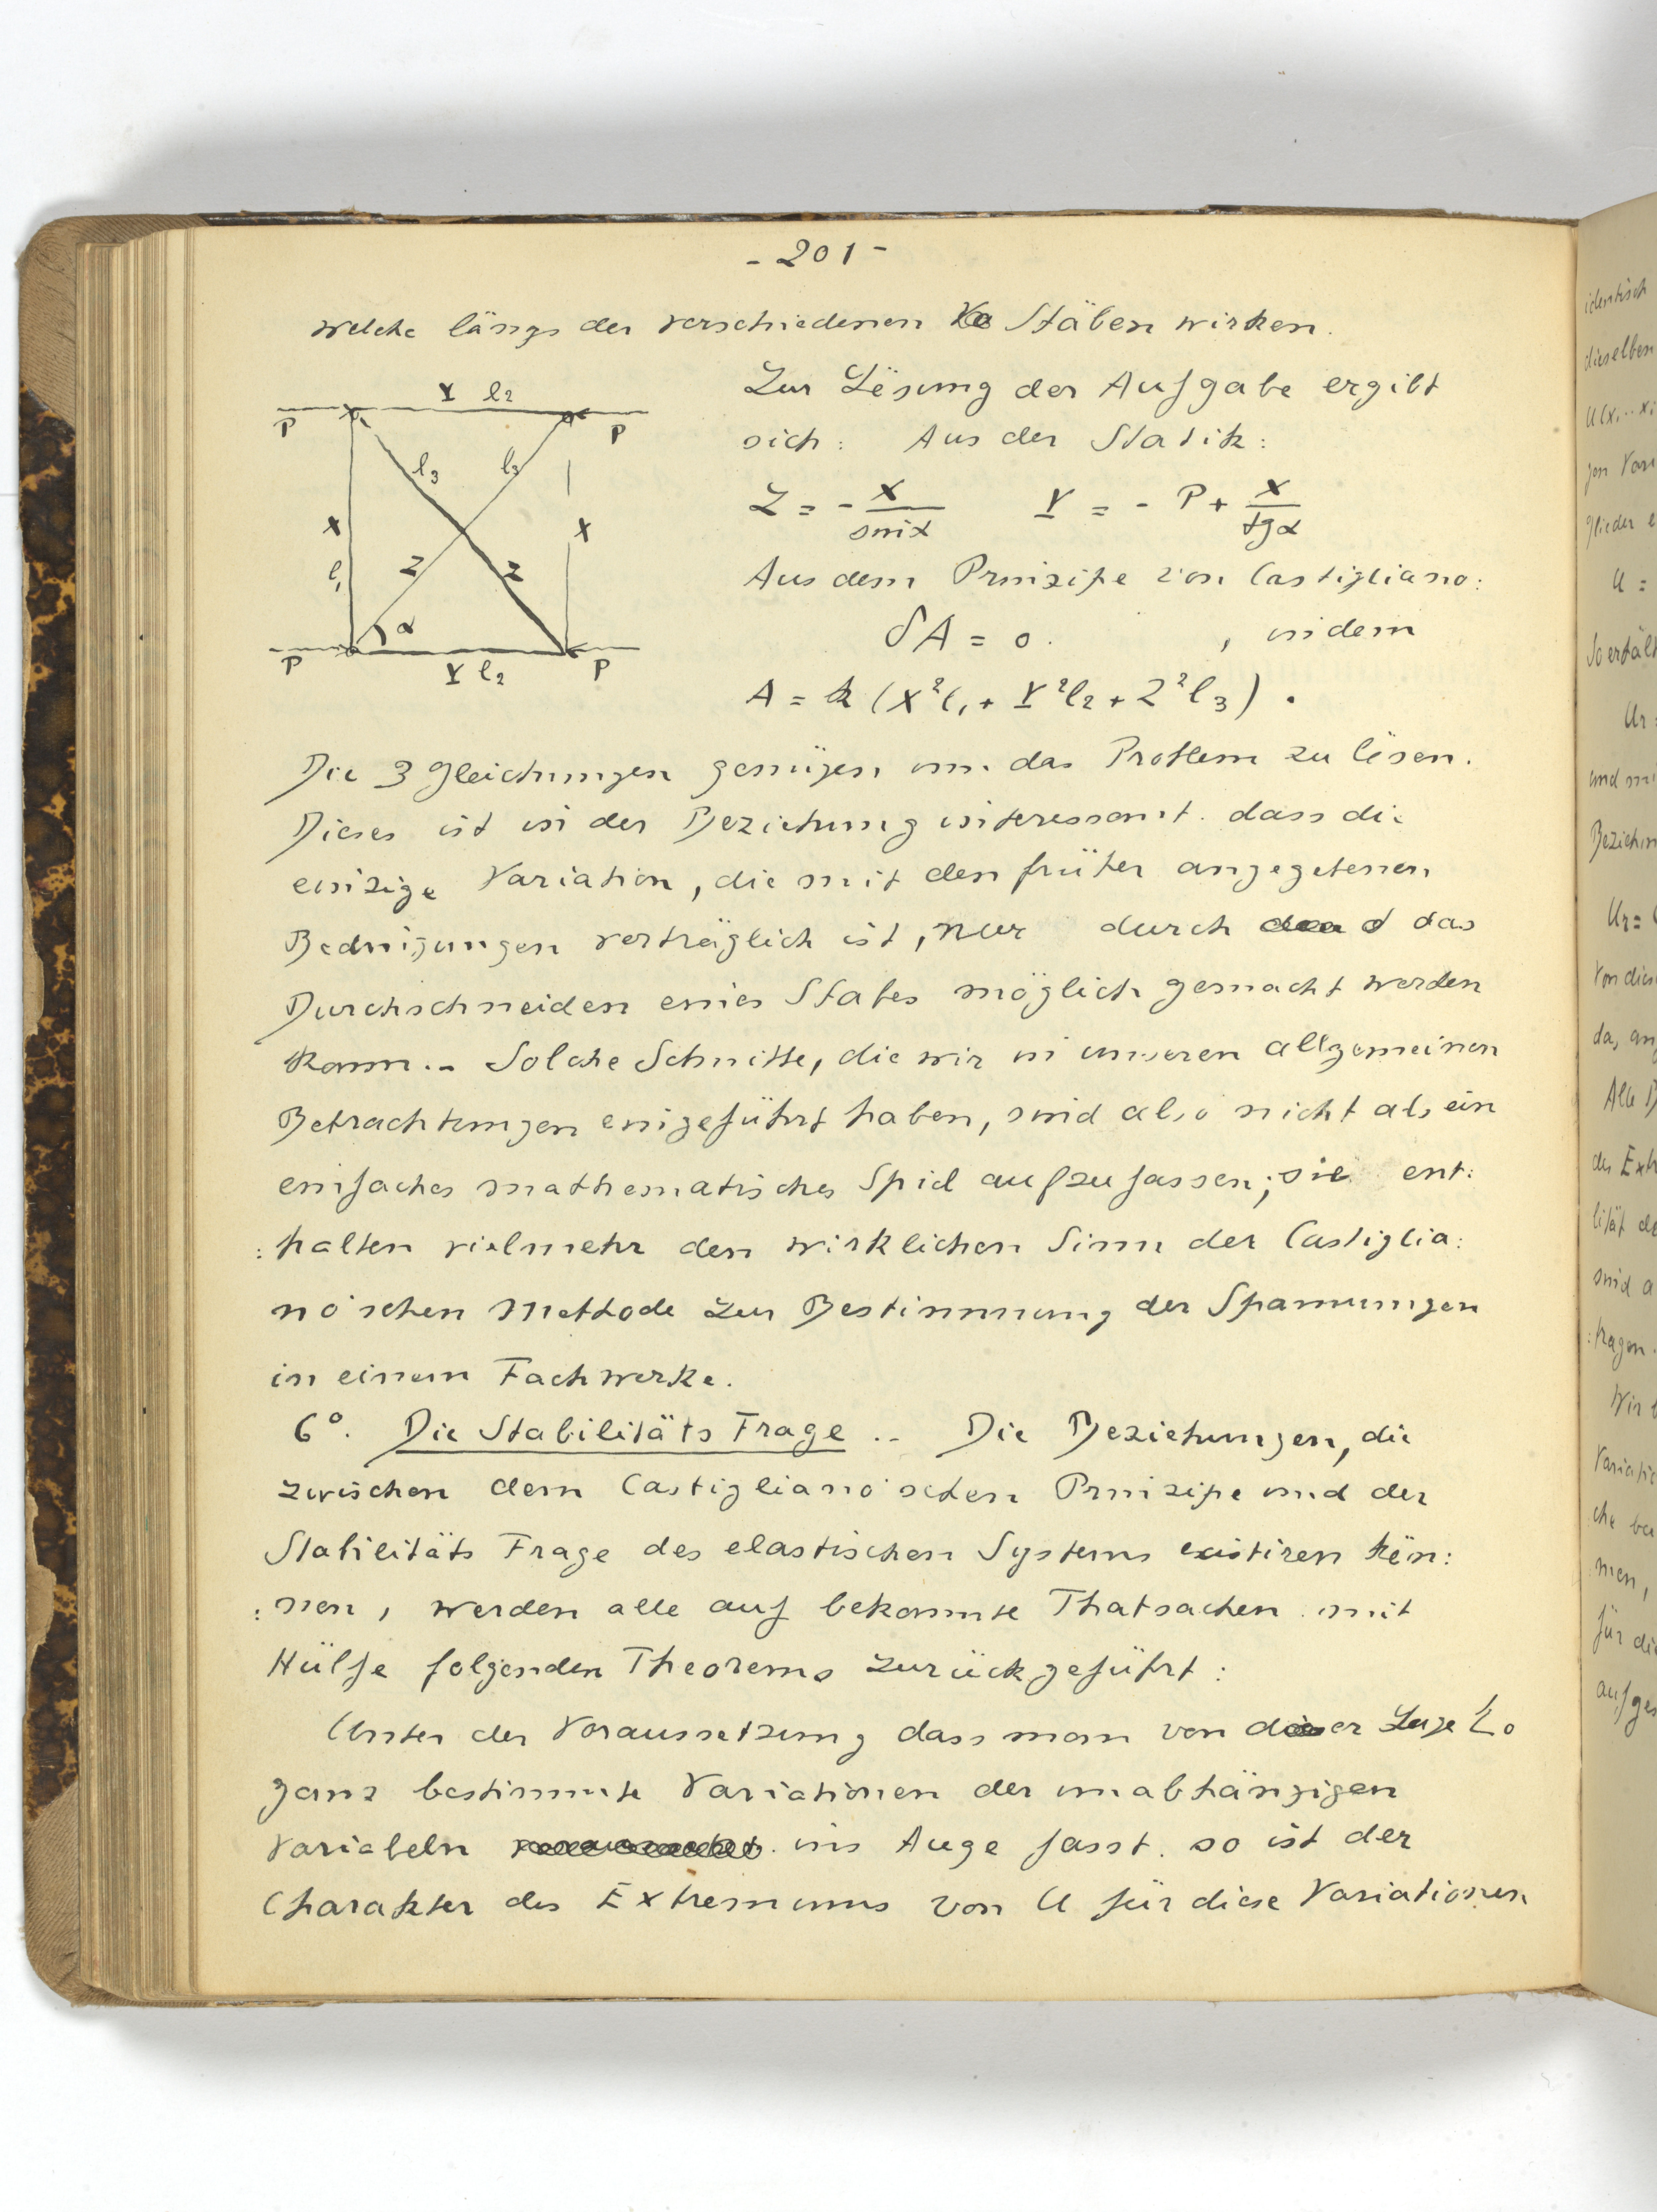 - 201 -
welche längs der verschiedenen Stäben wirken.
Y l2
P
P
l3
l3
X
X
l1
Z
Z
α
P
P
Y l2
Zur Lösung der Aufgabe ergibt
sich: Aus der Statik:
Z = - X/sin α Y = - P + X/tg α
Aus dem Prinzipe von Castigliano:
δA = 0. , indem
A = k (X²l1 + Y²l2 + Z²l3).
Die 3 Gleichungen genügen um das Problem zu lösen.
Dieses ist in der Beziehung interessant. dass die
einzige Variation, die mit den früher angegebenen
Bedingungen verträglich ist, nur durch das
Durchschneiden eines Stabes möglich gemacht werden
kann.- Solche Schnitte, die wir in unseren allgemeinen
Betrachtungen eingeführt haben, sind also nicht als ein
einfaches mathematisches Spiel aufzufassen; sie ent:
:halten vielmehr den wirklichen Sinn der Castiglia:
no'schen Methode zur Bestimmung der Spannungen
in einem Fachwerke.
6°. Die Stabilitäts Frage .- Die Beziehungen, die
zwischen dem Castigliano'schen Prinzipe und der
Stabilitäts Frage des elastischen Systems existiren kön:
:nen, werden alle auf bekannte Thatsachen mit
Hülfe folgenden Theorems zurückgeführt:
Unter der Voraussetzung dass man von dieser Lage
ganz bestimmte Variationen der unabhängigen
Variabeln ins Auge fasst. so ist der
Charakter des Extremums von U für diese Variationen
identisch
dieselben
U =
Beziehun